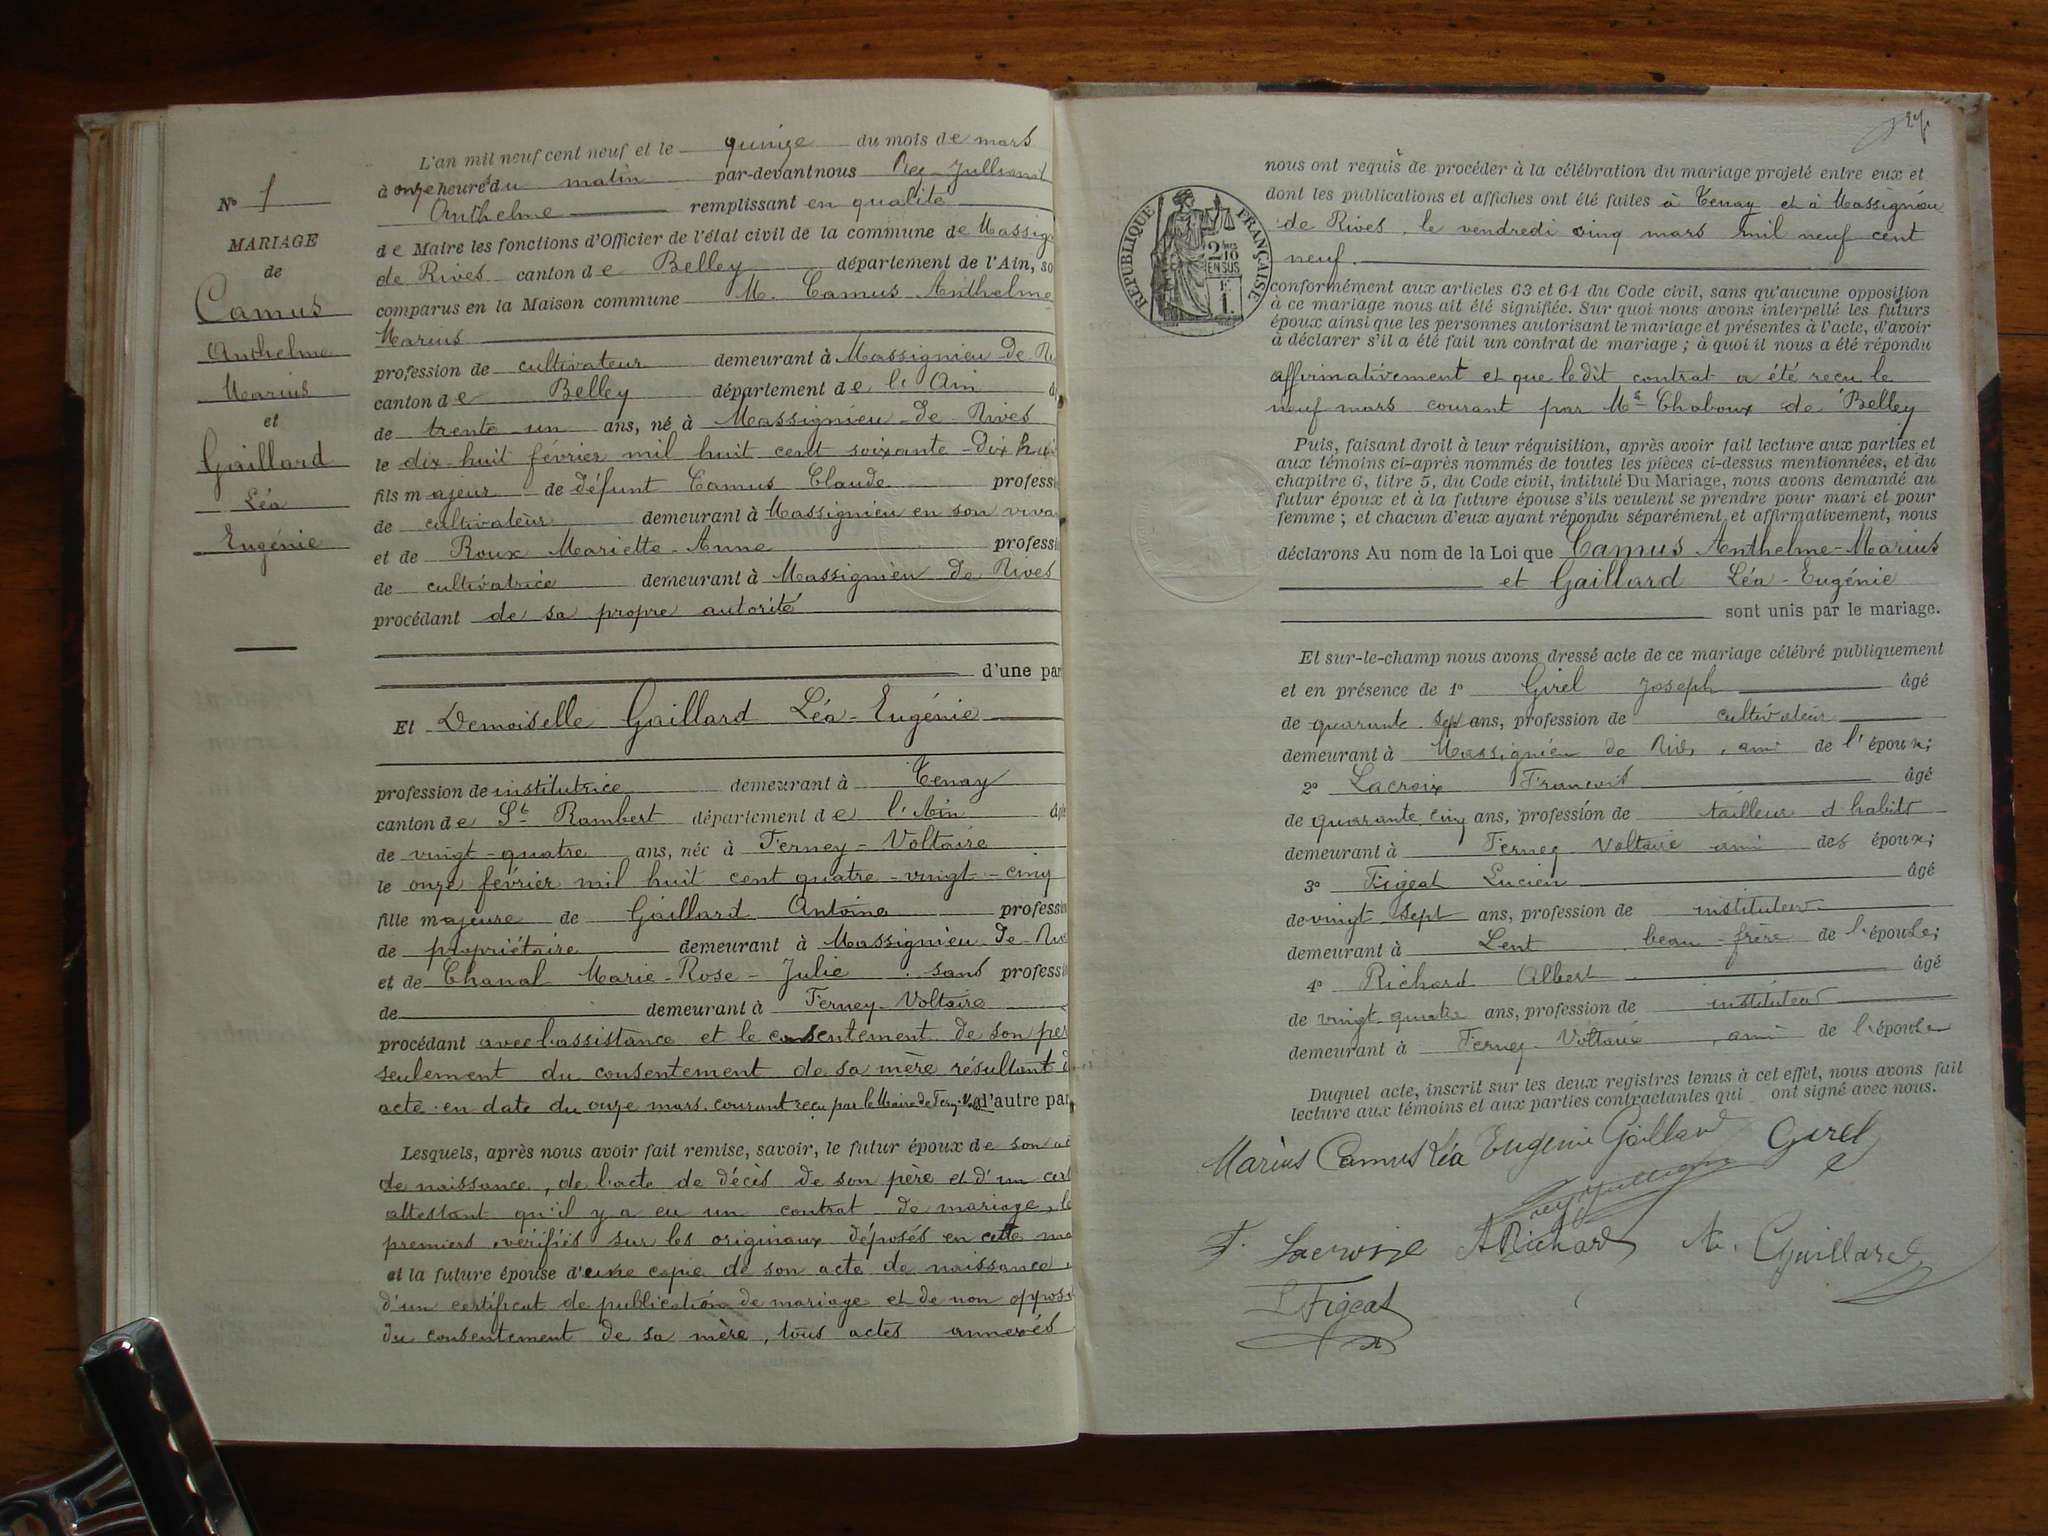 L'an mil neuf cent neuf et le quinze du mois de mars
à onze heures du matin par-devant nous Rey-Julliand
Anthelme remplissant en qualité
de Maire les fonctions d'Officier de l'état civil de la commune de Massig
de Rives canton de Belley département de l'Ain, so
comparus en la Maison commune M. Camus Anthelme
Marius
profession de cultivateur demeurant à Massignieu de Ri
canton de Belley département de l'Ain
de trente un ans, né à Massignieu de Rives
le dix huit février mil huit cent soixante-dix hui
fils majeur de défunt Camus Claude professi
de cultivateur demeurant à Massignieu en son viva
et de Roux Mariette-Anne professi
de cultivatrice demeurant à Massignieu de Rives
procédant de sa propre autorité
d'une par
Et Demoiselle Gaillard Léa-Eugénie
profession de institutrice demeurant à Tenay
canton de St Rambert département de l'Ain âgé
de vingt-quatre ans, née à Ferney-Voltaire
le onze février mil huit cent quatre-vingt-cinq
fille majeure de Gaillard Antoine profess
de propriétaire demeurant à Massignieu de Rive
et de Chanal Marie-Rose-Julie sans professi
de demeurant à Ferney-Voltaire
procédant avec l'assistance et le consentement de son pèr
seulement du consentement de sa mère résultant d
acte en date du onze mars courant reçu par le Maire de d'autre par
Lesquels, après nous avoir fait remise, savoir, le futur époux de son ac
de naissance, de l'acte de décès de son père et d'un cert
attestant qu'il y a eu un contrat de mariage, le
premiers vérifiés sur les originaux déposés en cette ma
et la future épouse d'une copie de son acte de naissance,
d'un certificat de publication de mariage et de non opposi
du consentement de sa mère, tous actes annexés
No 1
MARIAGE
de
Camus
Anthelme
Marius
et
Gaillard
Léa
Eugénie
nous ont requis de procéder à la célébration du mariage projeté entre eux et
dont les publications et affiches ont été faites à Tenay et à Massignieu
de Rives, le vendredi cinq mars mil neuf cent
neuf.
conformément aux articles 63 et 64 du Code civil, sans qu'aucune opposition
à ce mariage nous ait été signifiée. Sur quoi nous avons interpellé les futurs
époux ainsi que les personnes autorisant le mariage et présentes à l'acte, d'avoir
à déclarer s'il a été fait un contrat de mariage ; à quoi il nous a été répondu
affirmativement et que le dit contrat a été reçu le
neuf mars courant par Me Chaboux de Belley
Puis, faisant droit à leur réquisition, après avoir fait lecture aux parties et
aux témoins ci-après nommés de toutes les pièces ci-dessus mentionnées, et du
chapitre 6, titre 5, du Code civil, intitulé Du Mariage, nous avons demandé au
futur époux et à la future épouse s'ils veulent se prendre pour mari et pour
femme ; et chacun d'eux ayant répondu séparément et affirmativement, nous
déclarons Au nom de la Loi que Camus Anthelme-Marius
et Gaillard Léa-Eugénie
sont unis par le mariage.
Et sur-le-champ nous avons dressé acte de ce mariage célébré publiquement
et en présence de 1o Girel Joseph âgé
de quarante sept ans, profession de cultivateur
demeurant à Massignieu de Riv, ami de l'époux;
2o Lacroix François âgé
de quarante cinq ans, profession de tailleur d'habits
demeurant à Ferney Voltaire ami des époux;
3o Figeat Lucien âgé
de vingt sept ans, profession de instituteur
demeurant à Lent beau-frère de l'épouse;
4o Richard Albert âgé
de vingt-quatre ans, profession de instituteur
demeurant à Ferney-Voltaire, ami de l'épouse
Duquel acte, inscrit sur les deux registres tenus à cet effet, nous avons fait
lecture aux témoins et aux parties contractantes qui ont signé avec nous.
Marius Camus Léa Eugénie Gaillard Girel
Rey Julliand
F. Lacroix A Richard A. Gaillard
L Figeat
RÉPUBLIQUE FRANÇAISE
2/10
EN SUS
F.
1.